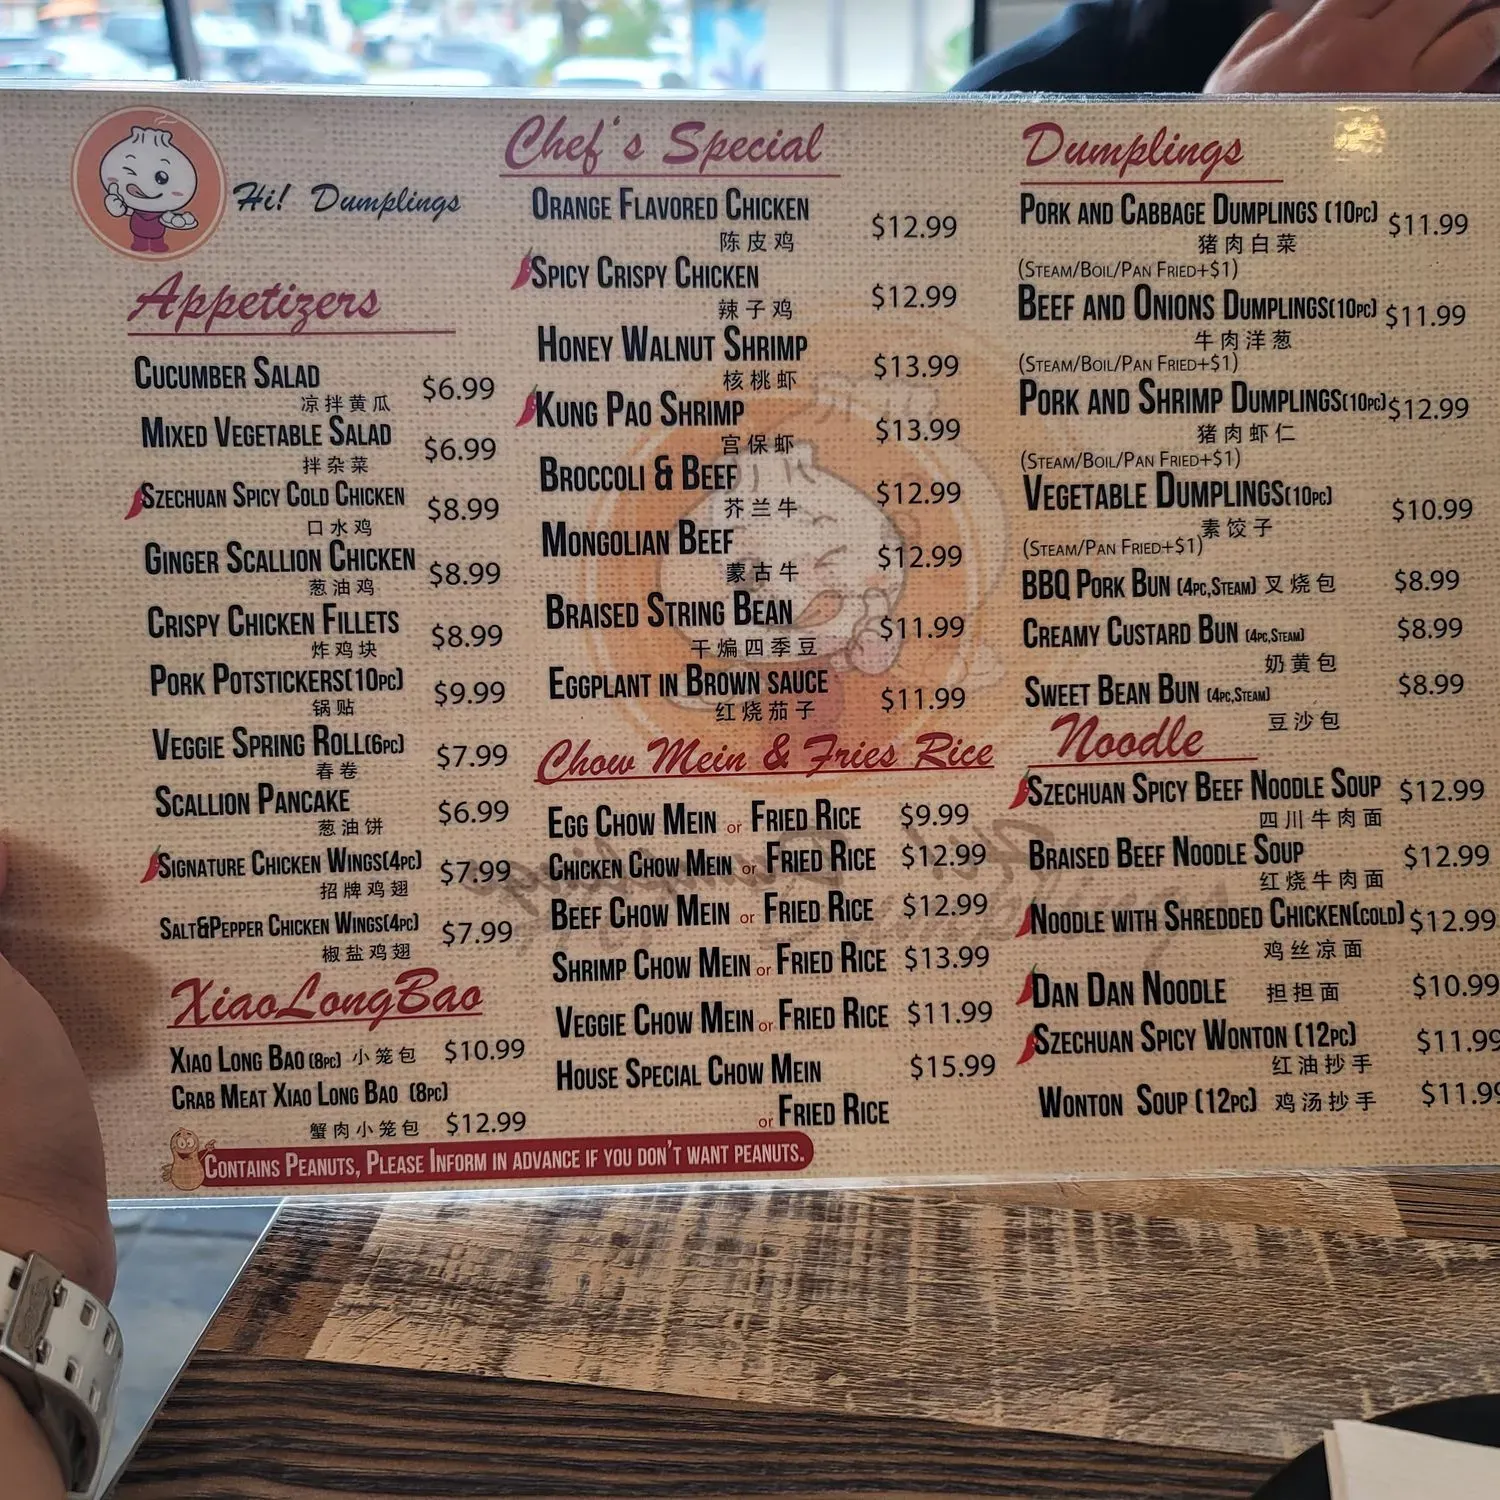 Hi! Dumplings
Appetizers
Cucumber Salad
凉拌黄瓜 $6.99
Mixed Vegetable Salad
拌杂菜 $6.99
Szechuan Spicy Cold Chicken
口水鸡 $8.99
Ginger Scallion Chicken
葱油鸡 $8.99
Crispy Chicken Fillets
炸鸡块 $8.99
Pork Potstickers(10pc)
锅贴 $9.99
Veggie Spring Roll(6pc)
春卷 $7.99
Scallion Pancake
葱油饼 $6.99
Signature Chicken Wings(4pc)
招牌鸡翅 $7.99
Salt&Pepper Chicken Wings(4pc)
椒盐鸡翅 $7.99
XiaoLongBao
Xiao Long Bao (8pc) 小笼包 $10.99
Crab Meat Xiao Long Bao (8pc)
蟹肉小笼包 $12.99
Contains Peanuts, Please Inform in advance if you don't want peanuts.
Chef's Special
Orange Flavored Chicken
陈皮鸡 $12.99
Spicy Crispy Chicken
辣子鸡 $12.99
Honey Walnut Shrimp
核桃虾 $13.99
Kung Pao Shrimp
宫保虾 $13.99
Broccoli & Beef
芥兰牛 $12.99
Mongolian Beef
蒙古牛 $12.99
Braised String Bean
干煸四季豆 $11.99
Eggplant in Brown sauce
红烧茄子 $11.99
Chow Mein & Fries Rice
Egg Chow Mein or Fried Rice $9.99
Chicken Chow Mein or Fried Rice $12.99
Beef Chow Mein or Fried Rice $12.99
Shrimp Chow Mein or Fried Rice $13.99
Veggie Chow Mein or Fried Rice $11.99
House Special Chow Mein $15.99
or Fried Rice
Dumplings
Pork and Cabbage Dumplings (10pc) $11.99
猪肉白菜
(Steam/Boil/Pan Fried+$1)
Beef and Onions Dumplings(10pc) $11.99
牛肉洋葱
(Steam/Boil/Pan Fried+$1)
Pork and Shrimp Dumplings(10pc) $12.99
猪肉虾仁
(Steam/Boil/Pan Fried+$1)
Vegetable Dumplings(10pc) $10.99
素饺子
(Steam/Pan Fried+$1)
BBQ Pork Bun (4pc,Steam) 叉烧包 $8.99
Creamy Custard Bun (4pc,Steam) $8.99
奶黄包
Sweet Bean Bun (4pc,Steam) $8.99
豆沙包
Noodle
Szechuan Spicy Beef Noodle Soup $12.99
四川牛肉面
Braised Beef Noodle Soup $12.99
红烧牛肉面
Noodle with Shredded Chicken(cold) $12.99
鸡丝凉面
Dan Dan Noodle 担担面 $10.99
Szechuan Spicy Wonton (12pc) $11.99
红油抄手
Wonton Soup (12pc) 鸡汤抄手 $11.99